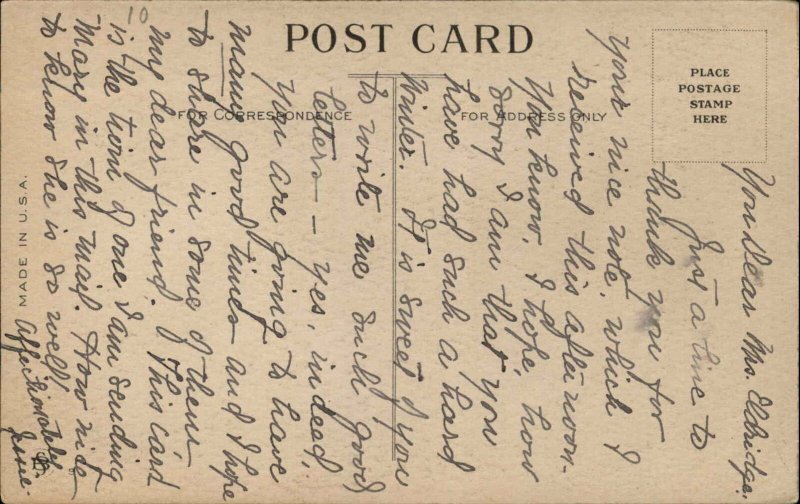 POST CARD
FOR CORRESPONDENCE
FOR ADDRESS ONLY
PLACE
POSTAGE
STAMP
HERE
MADE IN U.S.A.
10
You Dear Mrs. Eldridge.
Just a line to
thank you for
your nice note, which I
received this afternoon.
You know, I hope, how
sorry I am that you
have had such a hard
Winter. It is sweet of you
to write me such good
letters — yes, indeed,
you are going to have
many good times and I hope
to share in some of them
my dear friend. This card
is the twin of one I am sending
Mary in this mail. How nice
to know she is so well!
Affectionately
Jessie.